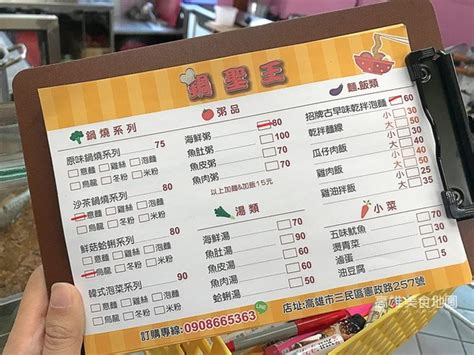 鍋聖王
鍋燒系列
原味鍋燒系列 75
意麵 雞絲 泡麵
烏龍 冬粉 米粉
沙茶鍋燒系列 80
意麵 雞絲 泡麵
烏龍 冬粉 米粉
鮮菇蛤蜊系列 90
意麵 雞絲 泡麵
烏龍 冬粉 米粉
韓式泡菜系列 80
意麵 雞絲 泡麵
烏龍 冬粉 米粉
粥品
海鮮粥 80
魚肚粥
魚皮粥
魚肉粥
以上加麵&加飯15元
湯類
海鮮湯
魚肚湯 90
魚皮湯 90
魚肉湯
蛤蜊湯
麵.飯類
招牌古早味乾拌泡麵 60
乾拌麵線 小 30
大
瓜仔肉飯 小
大
雞肉飯 小
大
雞油拌飯 小
大
小菜
五味魷魚
燙青菜
滷蛋
油豆腐
訂購專線:0908665363
LINE
店址:高雄市三民區憲政路257號
高雄美食地圖